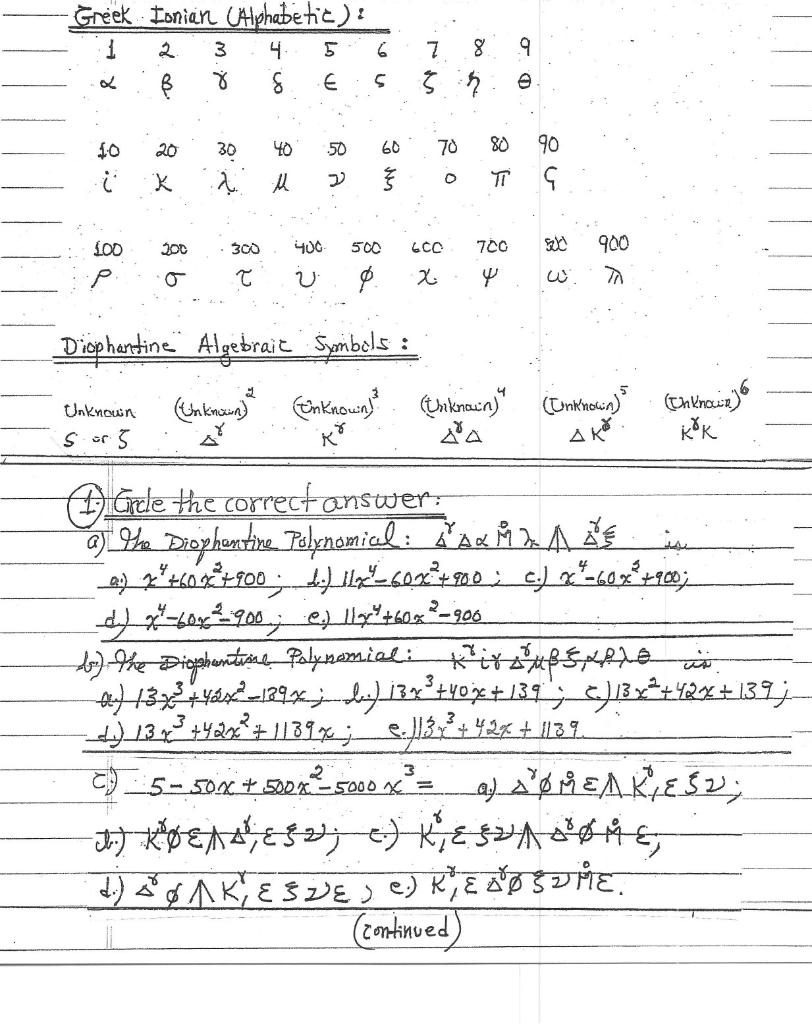 Greek Ionian (Alphabetic):
1 2 3 4 5 6 7 8 9
α β γ δ ε ς ζ η θ
10 20 30 40 50 60 70 80 90
i κ λ μ ν ξ ο π ϛ
100 200 300 400 500 600 700 800 900
ρ σ τ υ φ χ ψ ω ϡ
Diophantine Algebraic Symbols:
Unknown (Unknown)² (Unknown)³ (Unknown)⁴ (Unknown)⁵ (Unknown)⁶
ς or ζ Δ^γ K^γ Δ^γΔ ΔK^γ K^γK
1.) Circle the correct answer:
a) The Diophantine Polynomical: Δ^γΔα M̊ λ ⋔ Δ^γξ is
a.) x⁴+60x²+900; b.) 11x⁴-60x²+900; c.) x⁴-60x²+900;
d.) x⁴-60x²-900; e.) 11x⁴+60x²-900
b.) The Diophantine Polynomial: K^γiγ Δ^γμβ ξ,αρλθ is
a.) 13x³+42x²-139x; b.) 13x³+40x+139; c.) 13x²+42x+139;
d.) 13x³+42x²+1139x; e.) 13x³+42x+1139.
c.) 5-50x+500x²-5000x³= a.) Δ^γφM̊ε⋔K^γ,εξν;
b.) K^γφε⋔Δ^γ,εξν; c.) K^γ,εξν⋔Δ^γφM̊ε;
d.) Δ^γφ⋔K^γ,εξνε; e.) K^γ,εΔ^γφξνM̊ε.
(continued)